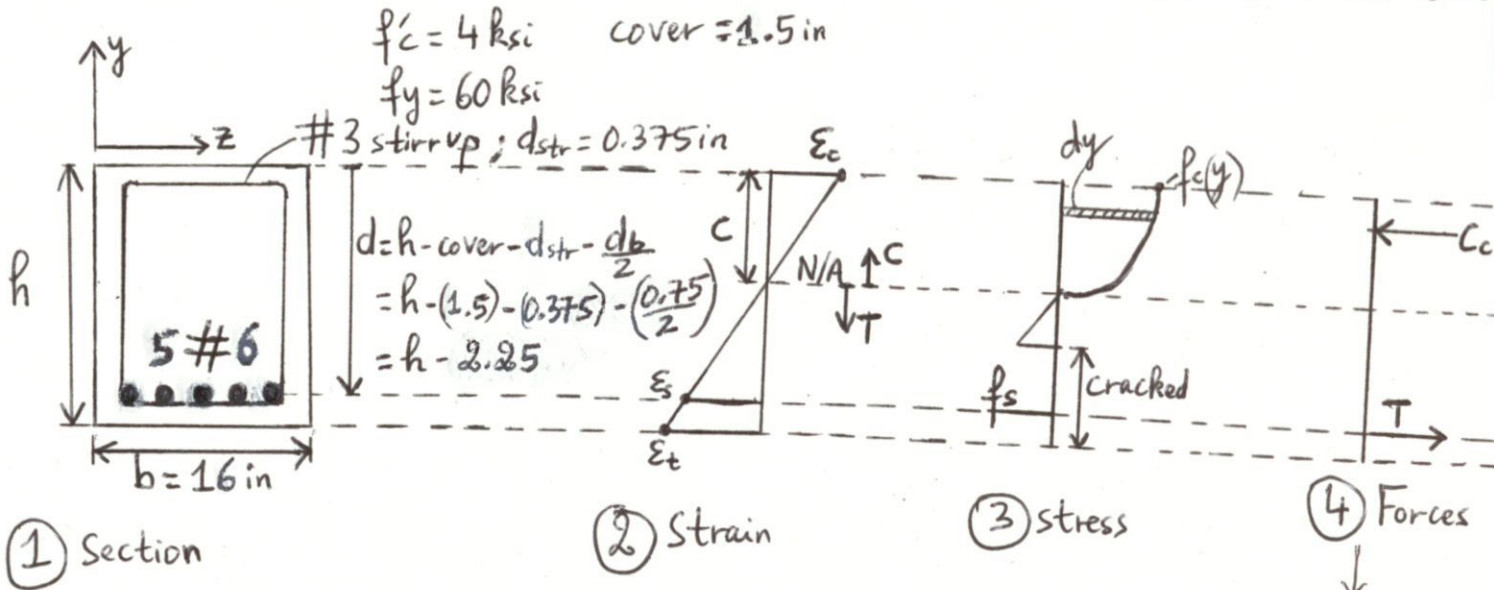 f'c = 4 ksi cover = 1.5 in
fy = 60 ksi
#3 stirrup ; dstr = 0.375 in
y
z
h
d = h - cover - dstr - db/2
= h - (1.5) - (0.375) - (0.75/2)
= h - 2.25
5#6
b = 16 in
εc
c
N/A
C
T
εs
εt
dy
fc(y)
fs
cracked
Cc
T
① Section
② Strain
③ stress
④ Forces